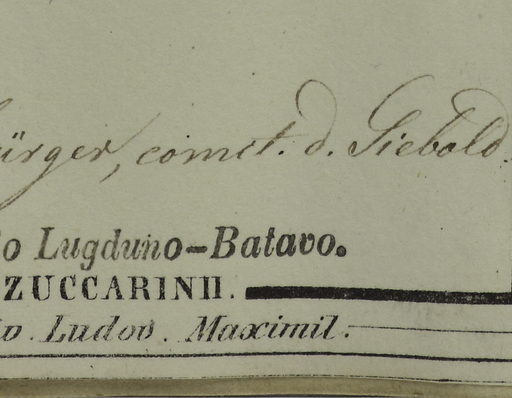 ürger, comct. d. Siebold
o Lugduno-Batavo.
ZUCCARINII.
v. Ludov. Maximil.